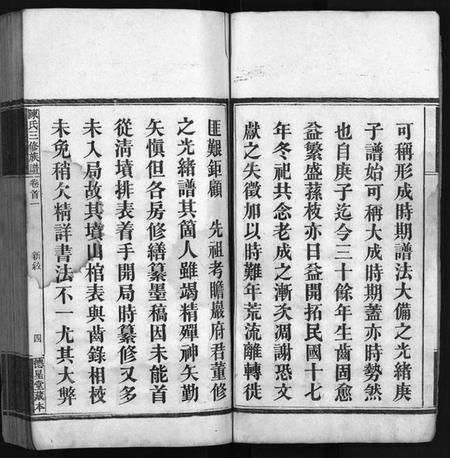 可稱形成時期譜法大備之光緒庚
子譜始可稱大成時期蓋亦時勢然
也自庚子迄今三十餘年生齒固愈
益繁盛蓀枝亦日益開拓民國十七
年冬祀共念老成之漸次凋謝恐文
獻之失徵加以時難年荒流離轉徙
匪艱鉅顧 先祖考瞻巖府君董修
之光緒譜其箇人雖竭精殫神矢勤
矢慎但各房修繕纂墨稿因未能首
從清墳排表着手開局時纂修又多
未入局故其墳山棺表與齒錄相校
未免稍欠精詳書法不一尤其大弊
陳氏三修族譜 卷首一 新敍 四 德星堂藏本